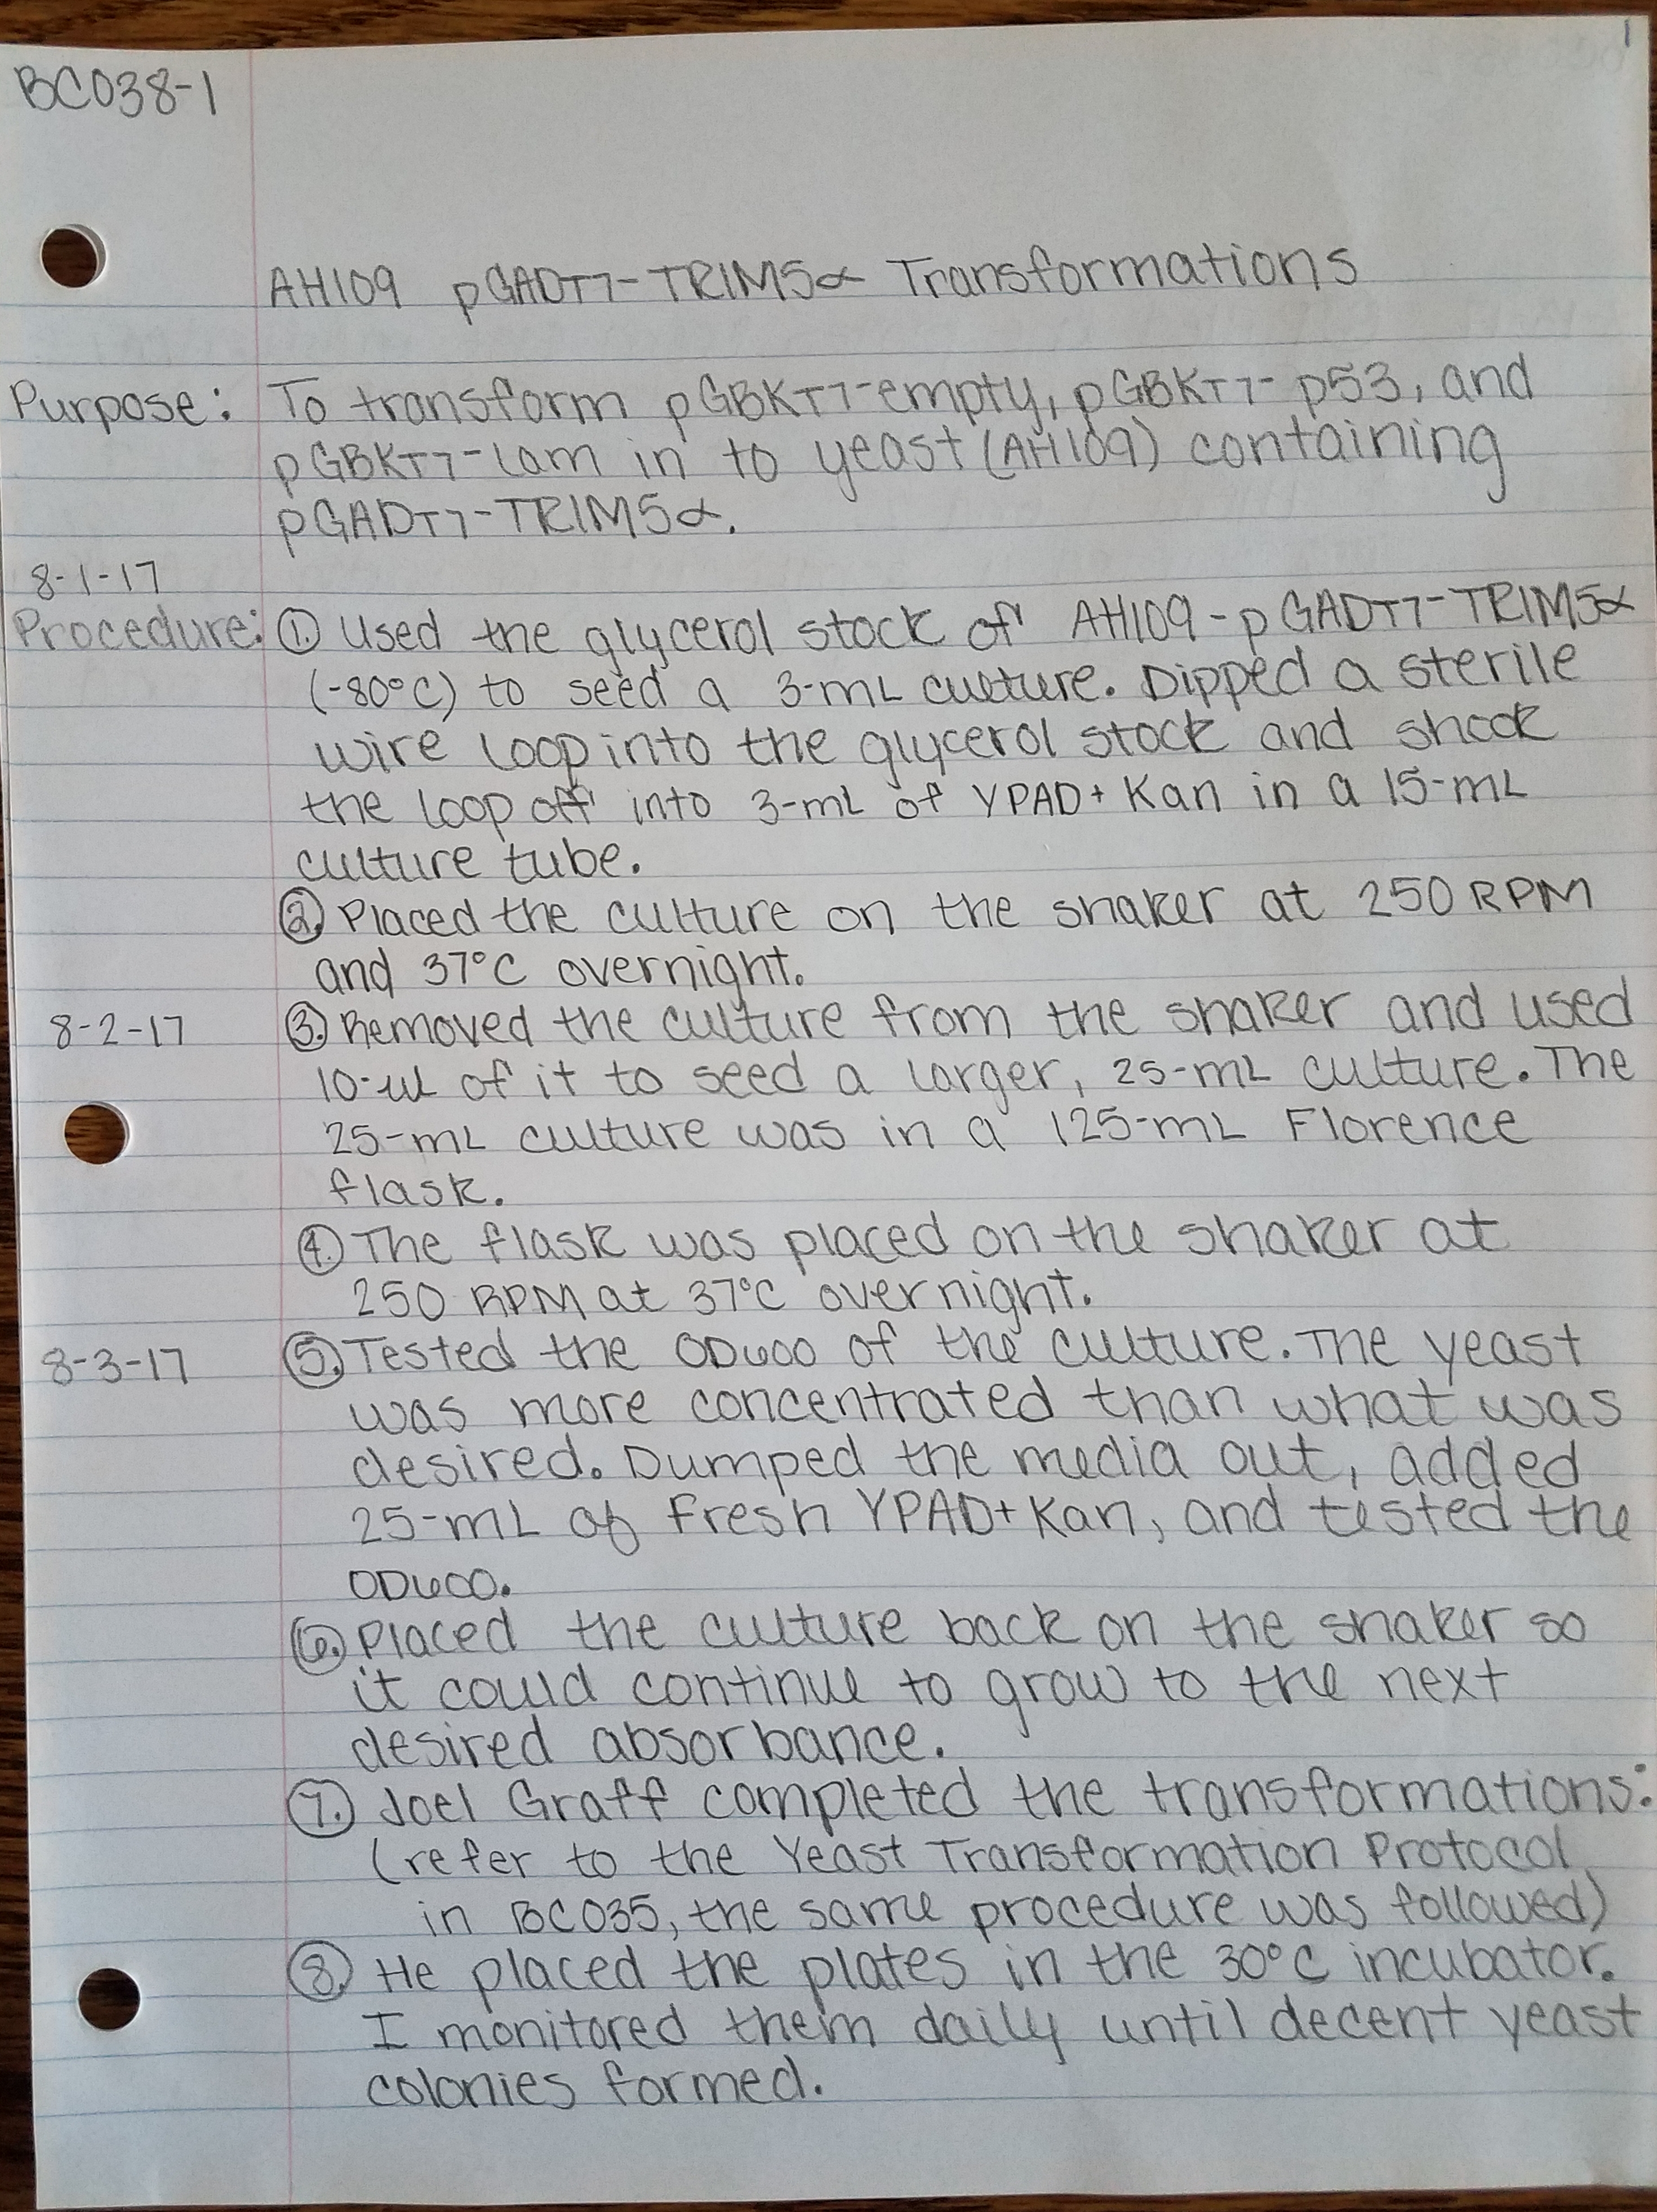 1
BC038-1
AH109 pGADT7-TRIM5α Transformations
Purpose: To transform pGBKT7-empty, pGBKT7-p53, and
pGBKT7-Lam in to yeast (AH109) containing
pGADT7-TRIM5α.
8-1-17
Procedure: ①. Used the glycerol stock of AH109-pGADT7-TRIM5α
(-80°C) to seed a 3-mL culture. Dipped a sterile
wire loop into the glycerol stock and shook
the loop off into 3-mL of YPAD+Kan in a 15-mL
culture tube.
②. Placed the culture on the shaker at 250 RPM
and 37°C overnight.
8-2-17 ③. Removed the culture from the shaker and used
10-uL of it to seed a larger, 25-mL culture. The
25-mL culture was in a 125-mL Florence
flask.
④. The flask was placed on the shaker at
250 RPM at 37°C overnight.
8-3-17 ⑤. Tested the OD600 of the culture. The yeast
was more concentrated than what was
desired. Dumped the media out, added
25-mL of fresh YPAD+Kan, and tested the
OD600.
⑥. Placed the culture back on the shaker so
it could continue to grow to the next
desired absorbance.
⑦. Joel Graff completed the transformations:
(refer to the Yeast Transformation Protocol
in BC035, the same procedure was followed)
⑧. He placed the plates in the 30°C incubator.
I monitored them daily until decent yeast
colonies formed.